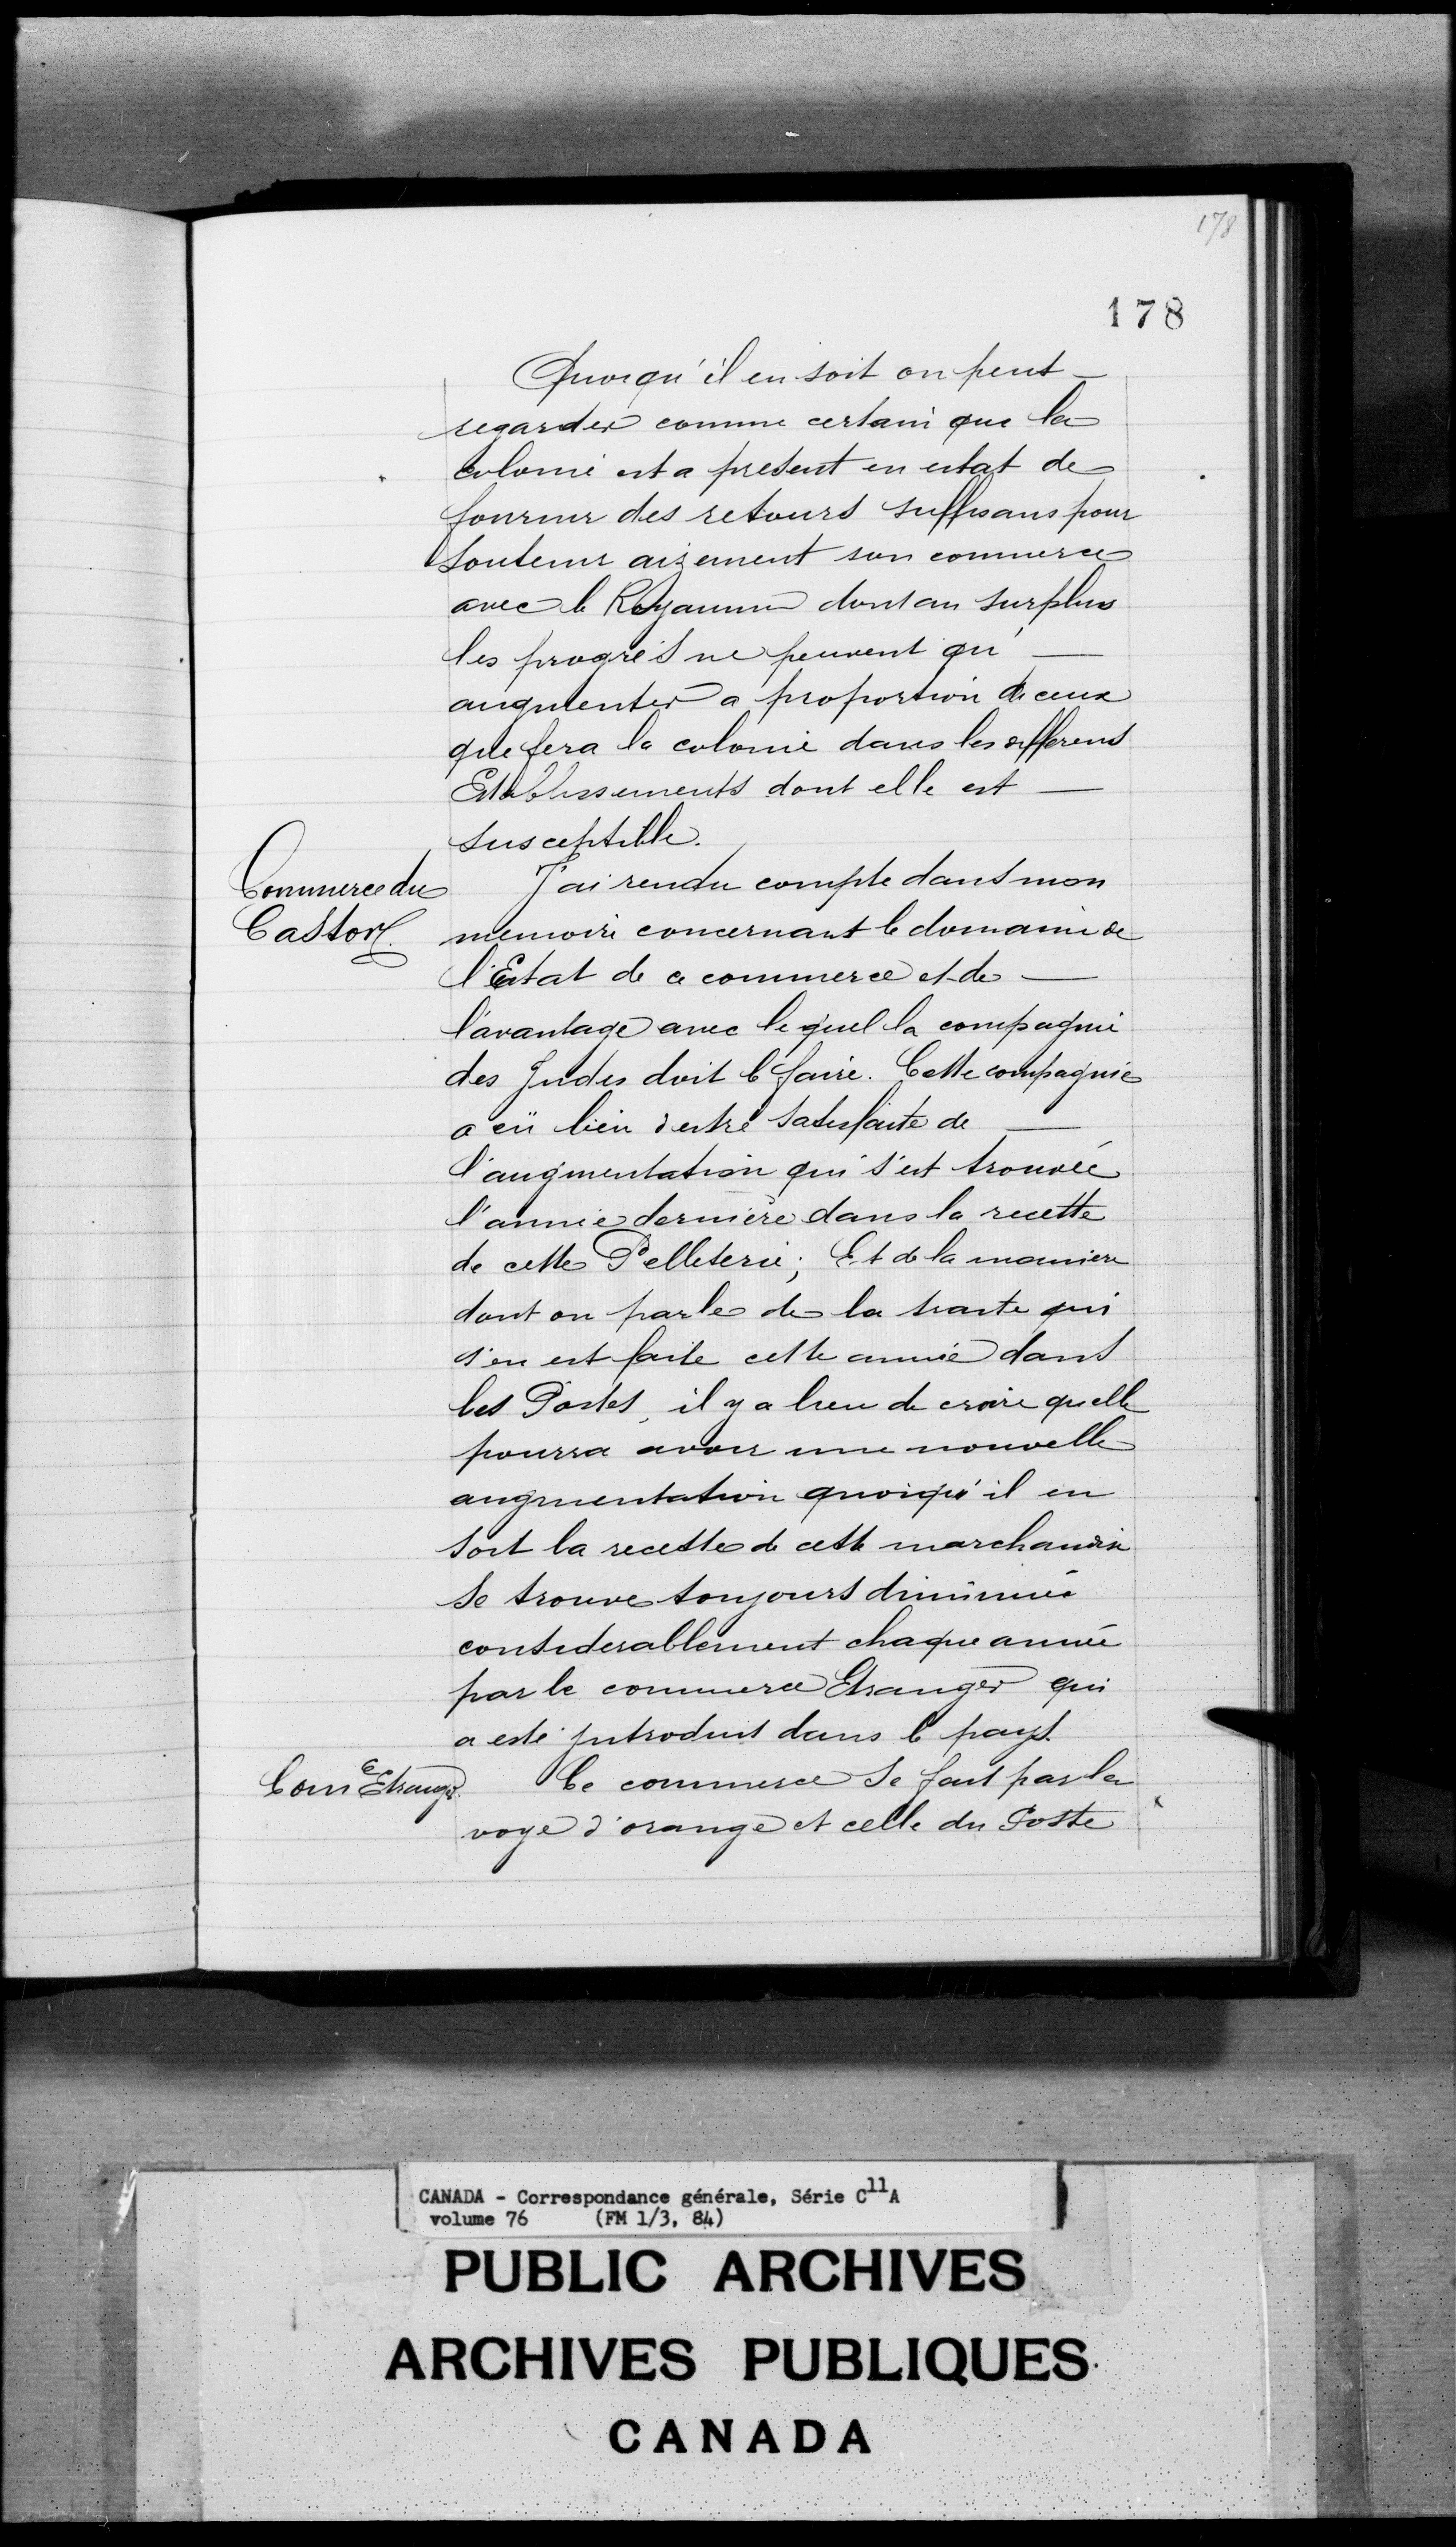 178
178
Quoiqu'il en soit on peut —
regarder comme certain que la
colonie est a present en estat de
fournir des retours suffisans pour
soutenir aizement son commerce
avec le Royaume dont au surplus
les progrés ne peuvent qu' —
augmenter a proportion de ceux
que fera la colonie dans les differens
Establissements dont elle est —
susceptible.
Commerce du
Castor.
J'ai rendu compte dans mon
memoire concernant le domaine de
l'Estat de ce commerce et de —
l'avantage avec lequel la compagnie
des Indes doit le faire. Cette compagnie
a eü lieu d'estre satisfaite de —
l'augmentation qui s'est trouvée
l'année derniere dans la recette
de cette Pelleterie; Et de la maniere
dont on parle de la traite qui
s'en est faite cette année dans
les Postes, il y a lieu de croire quelle
pourra avoir une nouvelle
augmentation quoiqu'il en
soit la recette de cette marchandise
se trouve toujours diminuée
considerablement chaque année
par le commerce Etranger qui
a esté introduit dans le pays.
Come Etranger.
Ce commerce se fait par la
voye d'orange et celle du Poste
CANADA - Correspondance générale, Série C11A
volume 76 (FM 1/3, 84)
PUBLIC ARCHIVES
ARCHIVES PUBLIQUES
CANADA